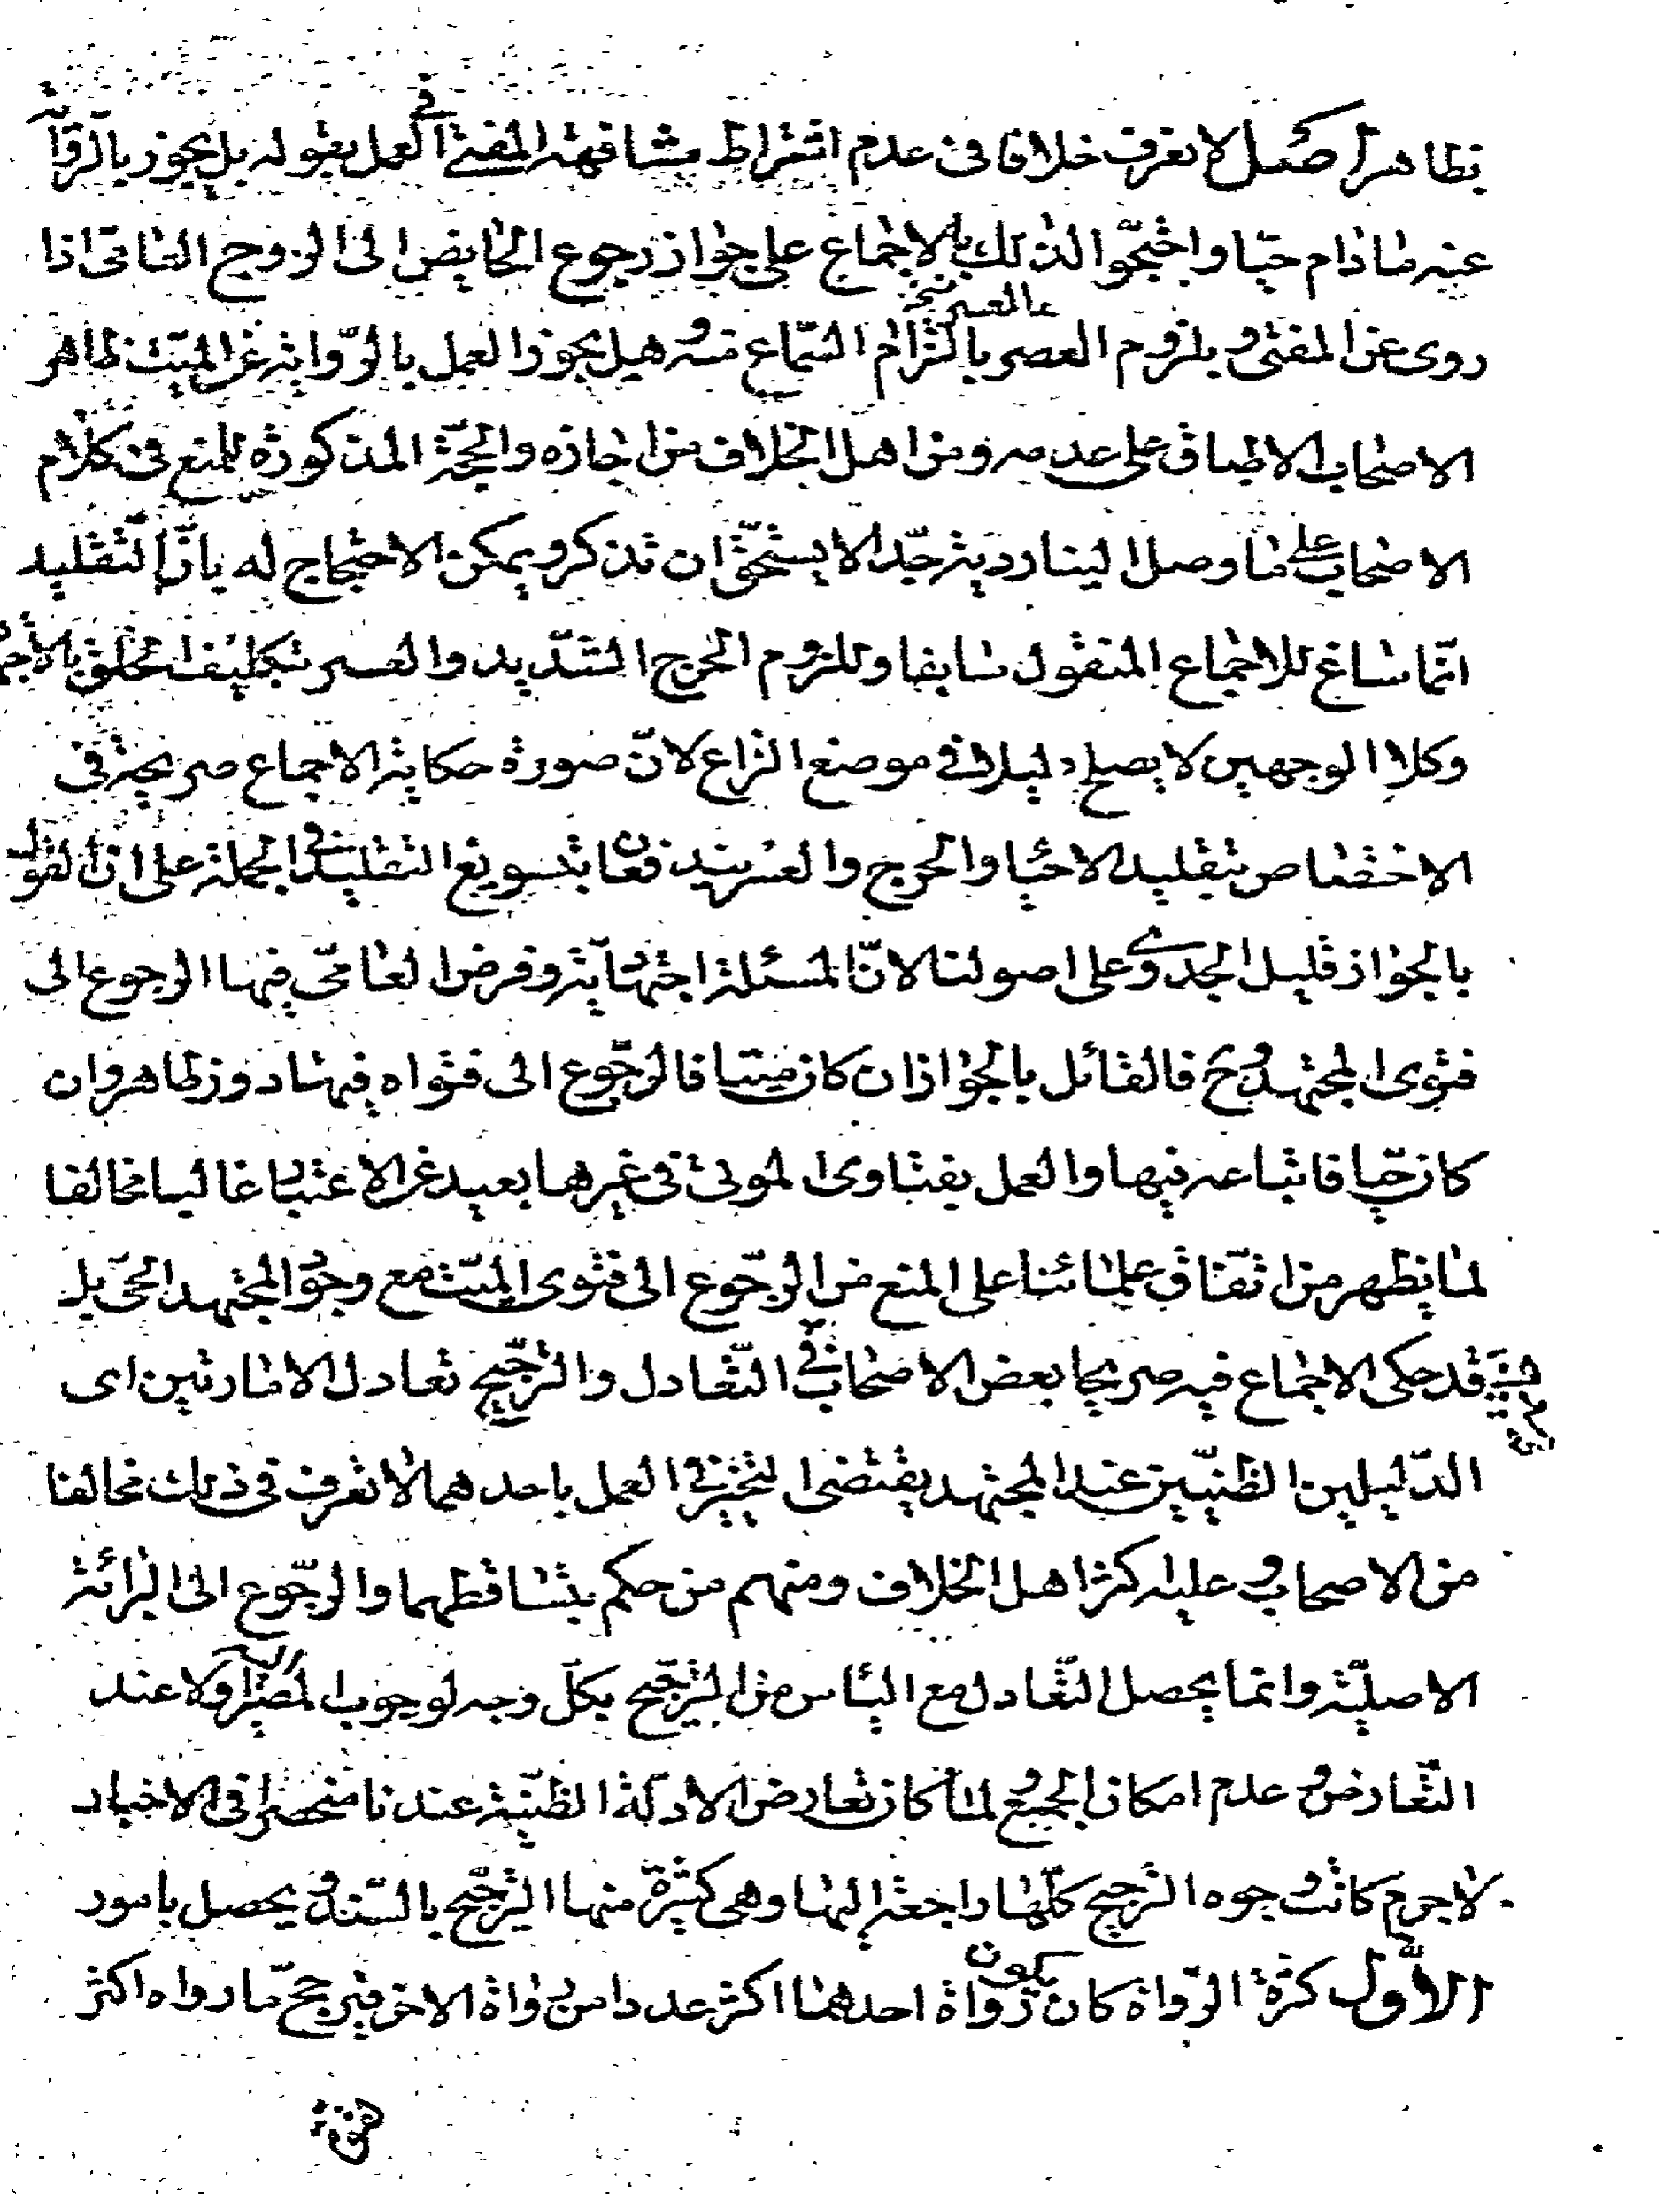 بظاهر اصل لا نعرف خلافا فى عدم اشتراط مشافهة المفتى فى العمل بقوله بل يجوز بالرواية
عنه مادام حيا واحتجوا لذلك بالاجماع على جواز رجوع الحايض الى الزوج العامى اذا
روى عن المفتى و بلزوم العسر بالتزام السماع منه و هل يجوز العمل بالرواية عن الميت ظاهر
الاصحاب الاطباق على عدمه ومن اهل الخلاف من اجازه والحجة المذكورة للمنع فى كلام
الاصحاب على ما وصل الينا ردية جدا لا يستحق ان تذكر و يمكن الاحتجاج له بان التقليد
انما ساغ للاجماع المنقول سابقا وللزوم الحرج الشديد والعسر بتكليف الخلق بالاجتهاد
وكلا الوجهين لا يصلح دليلا فى موضع النزاع لان صورة حكاية الاجماع صريحة فى
الاختصاص بتقليد الاحيا والحرج والعسر يندفعان بتسويغ التقليد فى الجملة على ان القول
بالجواز قليل الجدوى على اصولنا لان المسئلة اجتهادية و فرض العامى فيها الرجوع الى
فتوى المجتهد وح فالقائل بالجواز ان كان ميتا فالرجوع الى فتواه فيها دور ظاهر وان
كان حيا فاتباعه فيها والعمل بفتاوى الموتى فى غيرها بعيد عن الاعتبار غالبا مخالفا
لما يظهر من اتفاق علمائنا على المنع من الرجوع الى فتوى الميت مع وجود المجتهد الحى بل
قد حكى الاجماع فيه صريحا بعض الاصحاب فى التعادل والترجيح تعادل الامارتين اى
الدليلين الظنيين عند المجتهد يقتضى التخير فى العمل باحدهما لا نعرف فى ذلك مخالفا
من الاصحاب و عليه اكثر اهل الخلاف ومنهم من حكم بتساقطهما والرجوع الى البرائة
الاصلية وانما يحصل التعادل مع الياس من الترجيح بكل وجه لوجوب المصير اليه اولا عند
التعارض و عدم امكان الجمع و لما كان تعارض الادلة الظنية عندنا منحصرا فى الاخبار
لاجرم كانت وجوه الترجيح كلها راجعة اليها وهى كثيرة منها الترجيح بالسند و يحصل بامور
الاول كثرة الرواة كان يكون رواة احدهما اكثر عددا من رواة الاخر فيرجح ما رواه اكثر